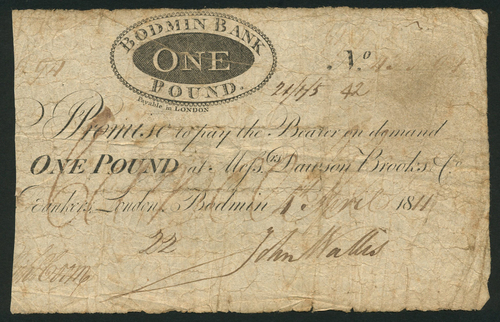 BODMIN BANK
ONE
POUND.
Payable in LONDON
No
21/7/5 42
I Promise to pay the Bearer on demand
ONE POUND at Messrs Dawson Brooks & Co
Bankers, London, Bodmin April 181
22 John Wallis